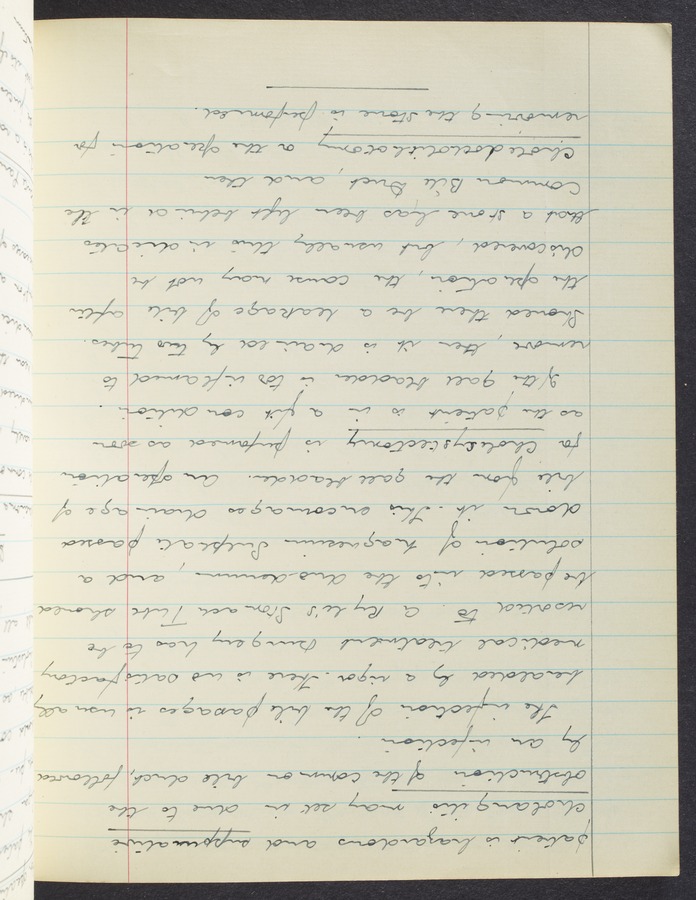 patient is hazardous and suppurative
cholangitis may set in due to the
obstruction of the common bile duct, followed
by an infection.
The infection of the bile passages is usually
heralded by a rigor. There is no satisfactory
medical treatment Surgery has to be
resorted to. A Ryle's Stomach Tube should
be passed into the duodenum, and a
solution of Magnesium Sulphate passed
down it. This encourages drainage of
bile from the gall bladder. An operation
for Cholecystectomy is performed as soon
as the patient is in a fit condition.
If the gall bladder is too inflamed to
remove, then it is drained by two tubes.
Should there be a leakage of bile after
the operation, the cause may not be
discovered, but usually this indicates
that a stone has been left behind in the
Common Bile Duct, and then
Choledochotomy or the operation for
removing the stone is performed.